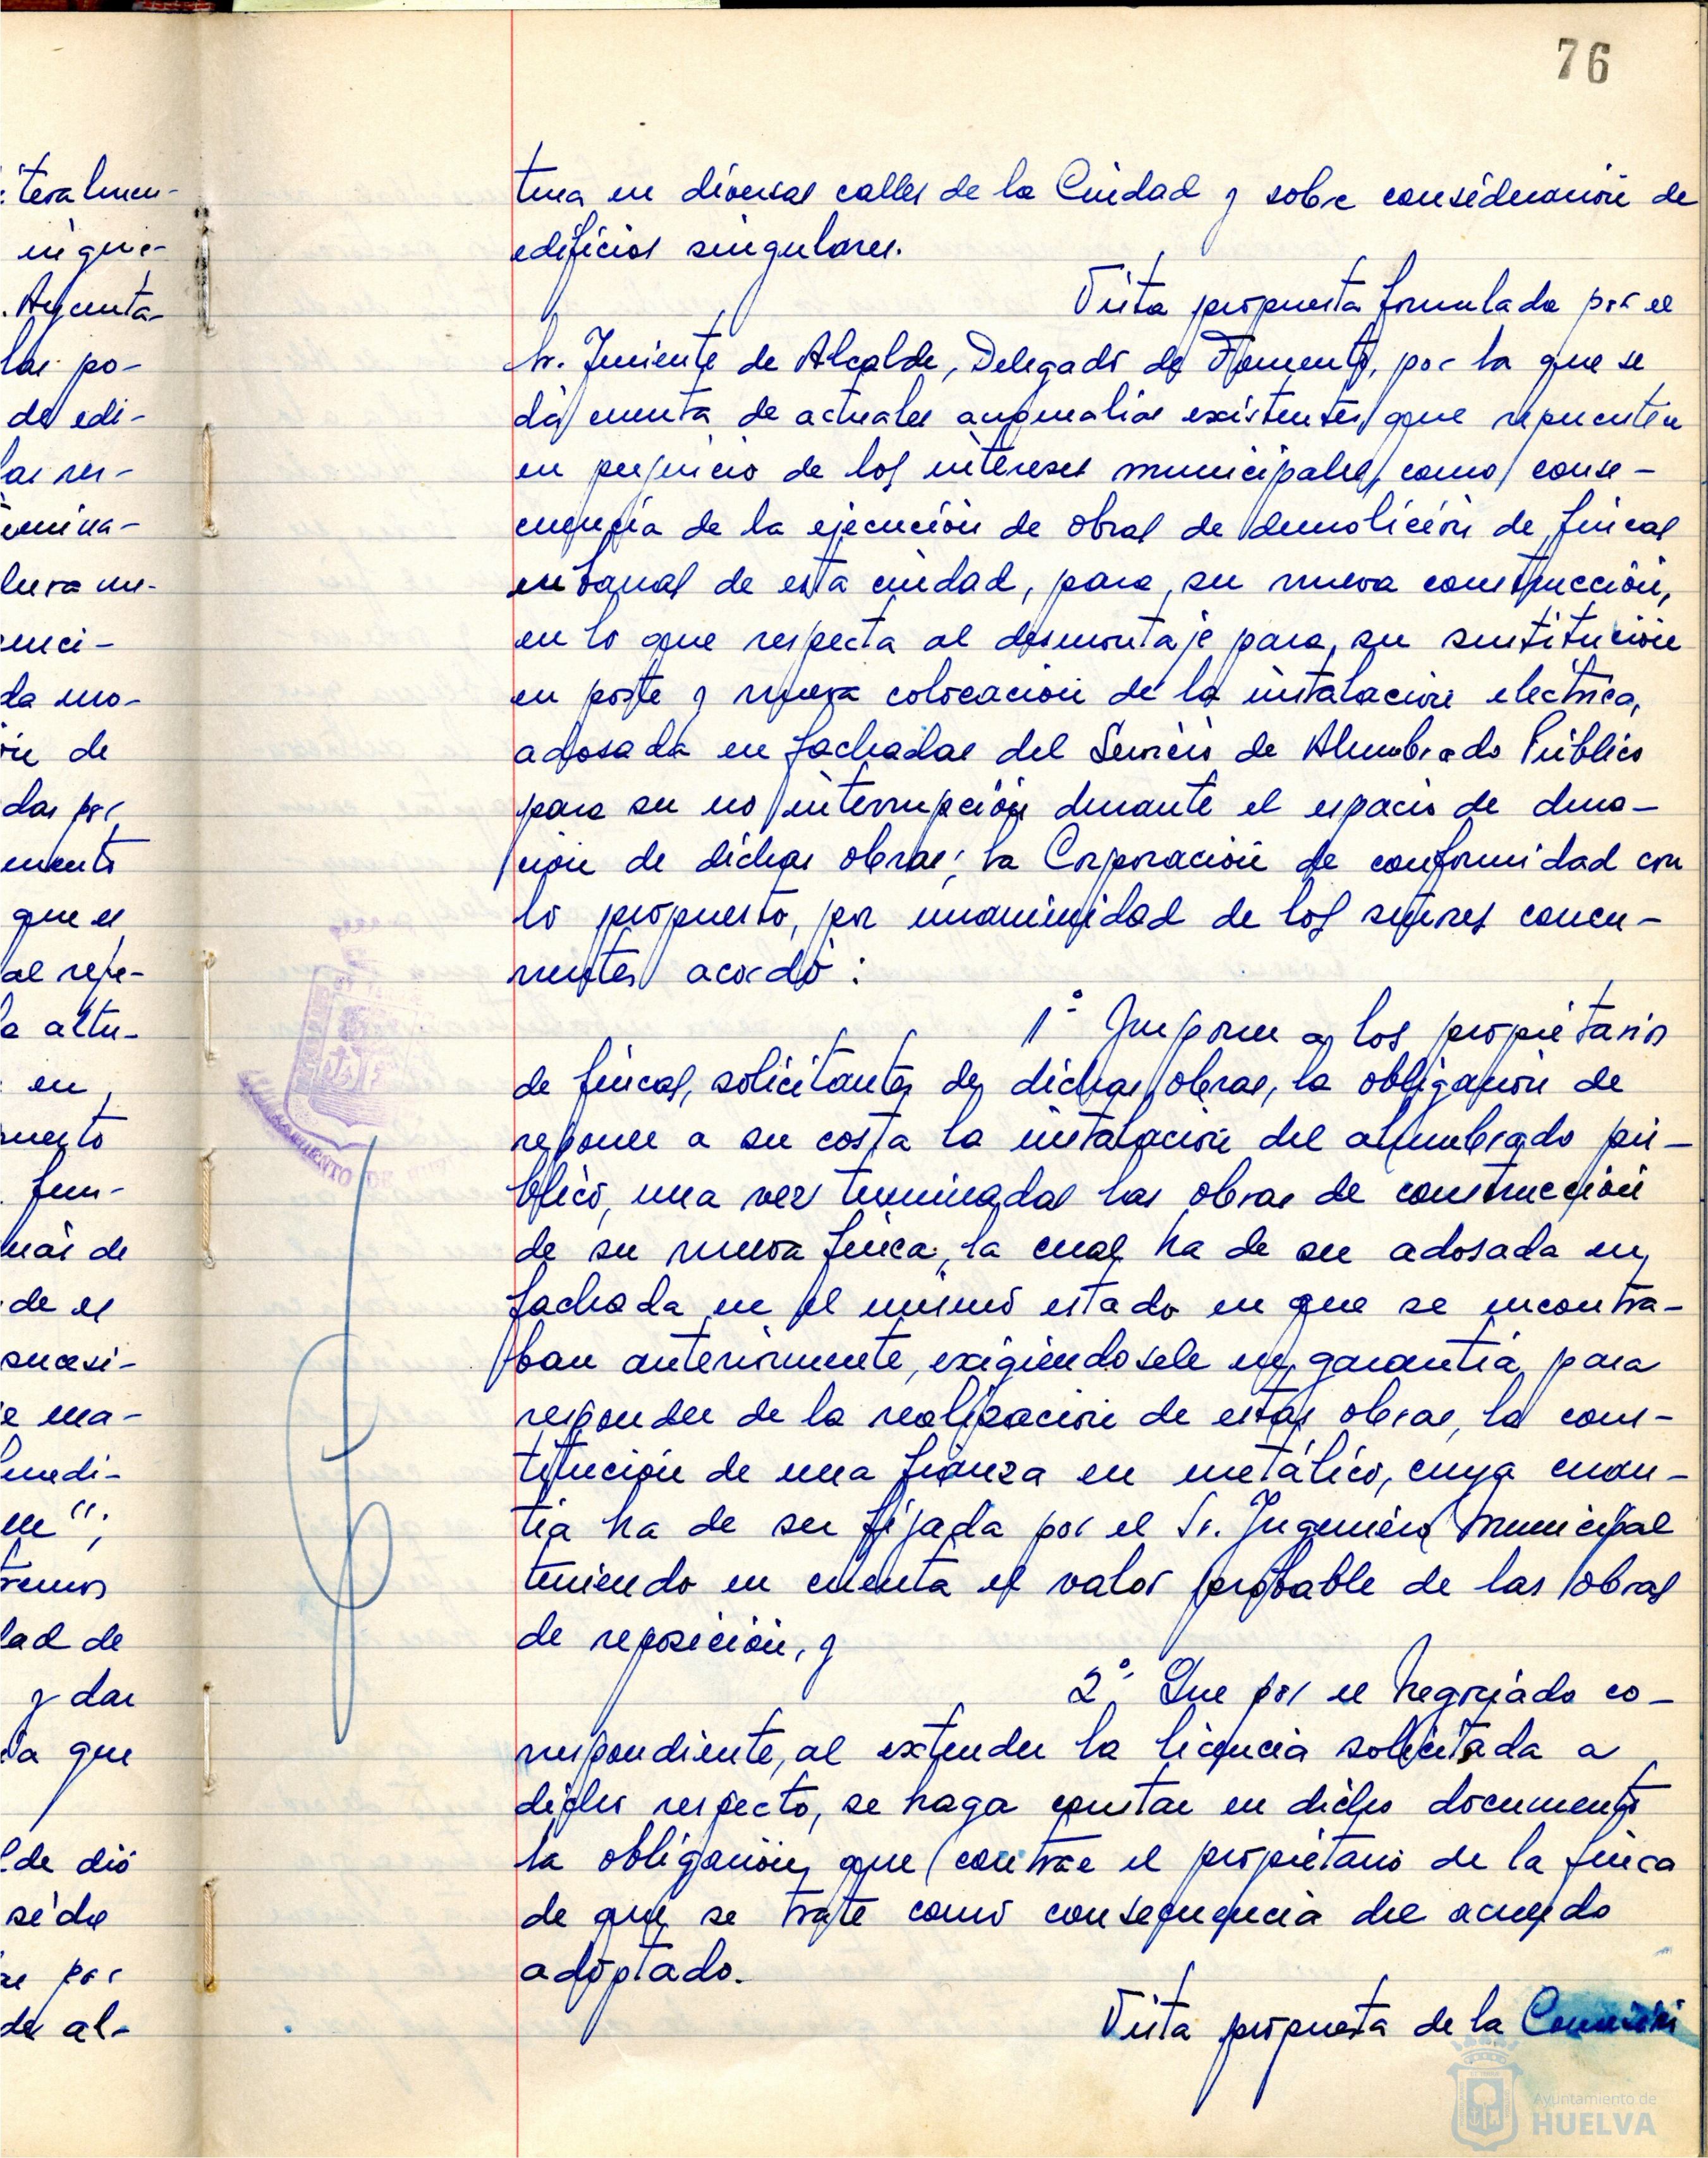 76
tura en diversas calles de la Ciudad y sobre consideración de
edificios singulares.
Vista propuesta formulada por el
Sr. Teniente de Alcalde, Delegado de Fomento, por la que se
dá cuenta de actuales anomalias existentes que repercuten
en perjuicio de los intereses municipales, como conse-
cuencia de la ejecución de obras de demolición de fincas
urbanas de esta ciudad, para su nueva construcción,
en lo que respecta al desmontaje para su sustitución
en poste y nueva colocación de la instalación electrica,
adosada en fachadas del Servicio de Alumbrado Público
para su no interrupción durante el espacio de dura-
ción de dichas obras; la Corporación de conformidad con
lo propuesto, por unanimidad de los señores concu-
rrentes acordó:
1º Imponer a los propietarios
de fincas, solicitantes de dichas obras, la obligación de
reponer a su costa la instalación del alumbrado pú-
blico, una vez terminadas las obras de construcción
de su nueva finca, la cual ha de ser adosada en
fachada en el mismo estado en que se encontra-
ban anteriormente, exigiendosele en garantía para
responder de la realización de estas obras, la cons-
titución de una fianza en metálico, cuya cuan-
tía ha de ser fijada por el Sr. Ingeniero Municipal
teniendo en cuenta el valor probable de las obras
de reposición, y
2º. Que por el Negociado co-
rrespondiente, al extender la licencia solicitada a
dicho respecto, se haga constar en dicho documento
la obligación que contrae el propietario de la finca
de que se trate como consecuencia del acuerdo
adoptado.
Vista propuesta de la Comisión
iteralmen-
. Ayunta-
las po-
de edi-
las res-
da mo-
ón de
das por
que el
al refe-
la altu-
en
más de
de el
sucesi-
medi-
en";
lad de
y dar
ia que
lde dió
por
de al-
AYUNTAMIENTO DE
Ayuntamiento de
HUELVA